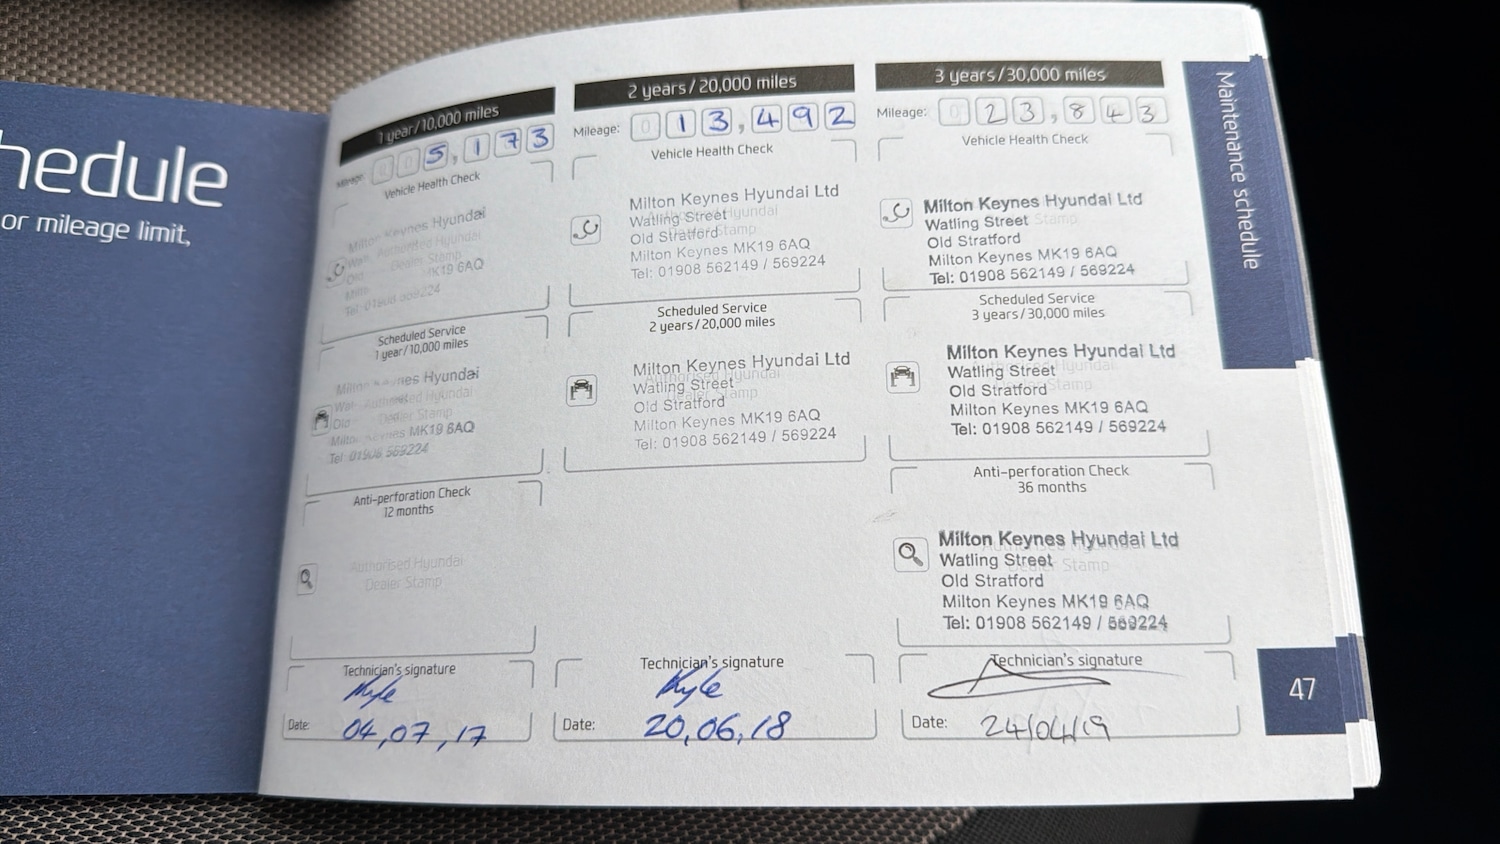 hedule
or mileage limit,
1 year/10,000 miles
Mileage: 0 0 5,173
Vehicle Health Check
Milton Keynes Hyundai
Authorised Hyundai
Dealer Stamp
MK19 6AQ
Tel: 01908 569224
Scheduled Service
1 year/10,000 miles
Milton Keynes Hyundai
Authorised Hyundai
Dealer Stamp
Milton Keynes MK19 6AQ
Tel: 01908 569224
Anti-perforation Check
12 months
Authorised Hyundai
Dealer Stamp
Technician's signature
Kyle
Date: 04,07,17
2 years/20,000 miles
Mileage: 0 13,492
Vehicle Health Check
Milton Keynes Hyundai Ltd
Watling Street
Old Stratford
Milton Keynes MK19 6AQ
Tel: 01908 562149 / 569224
Authorised Hyundai
Dealer Stamp
Scheduled Service
2 years/20,000 miles
Milton Keynes Hyundai Ltd
Watling Street
Old Stratford
Milton Keynes MK19 6AQ
Tel: 01908 562149 / 569224
Authorised Hyundai
Dealer Stamp
Technician's signature
Kyle
Date: 20,06,18
3 years/30,000 miles
Mileage: 0 23,843
Vehicle Health Check
Milton Keynes Hyundai Ltd
Watling Street
Old Stratford
Milton Keynes MK19 6AQ
Tel: 01908 562149 / 569224
Stamp
Scheduled Service
3 years/30,000 miles
Milton Keynes Hyundai Ltd
Watling Street
Old Stratford
Milton Keynes MK19 6AQ
Tel: 01908 562149 / 569224
Authorised Hyundai
Dealer Stamp
Anti-perforation Check
36 months
Milton Keynes Hyundai Ltd
Watling Street
Old Stratford
Milton Keynes MK19 6AQ
Tel: 01908 562149 / 569224
Authorised Hyundai
Dealer Stamp
Technician's signature
Date: 24/04/19
Maintenance schedule
47